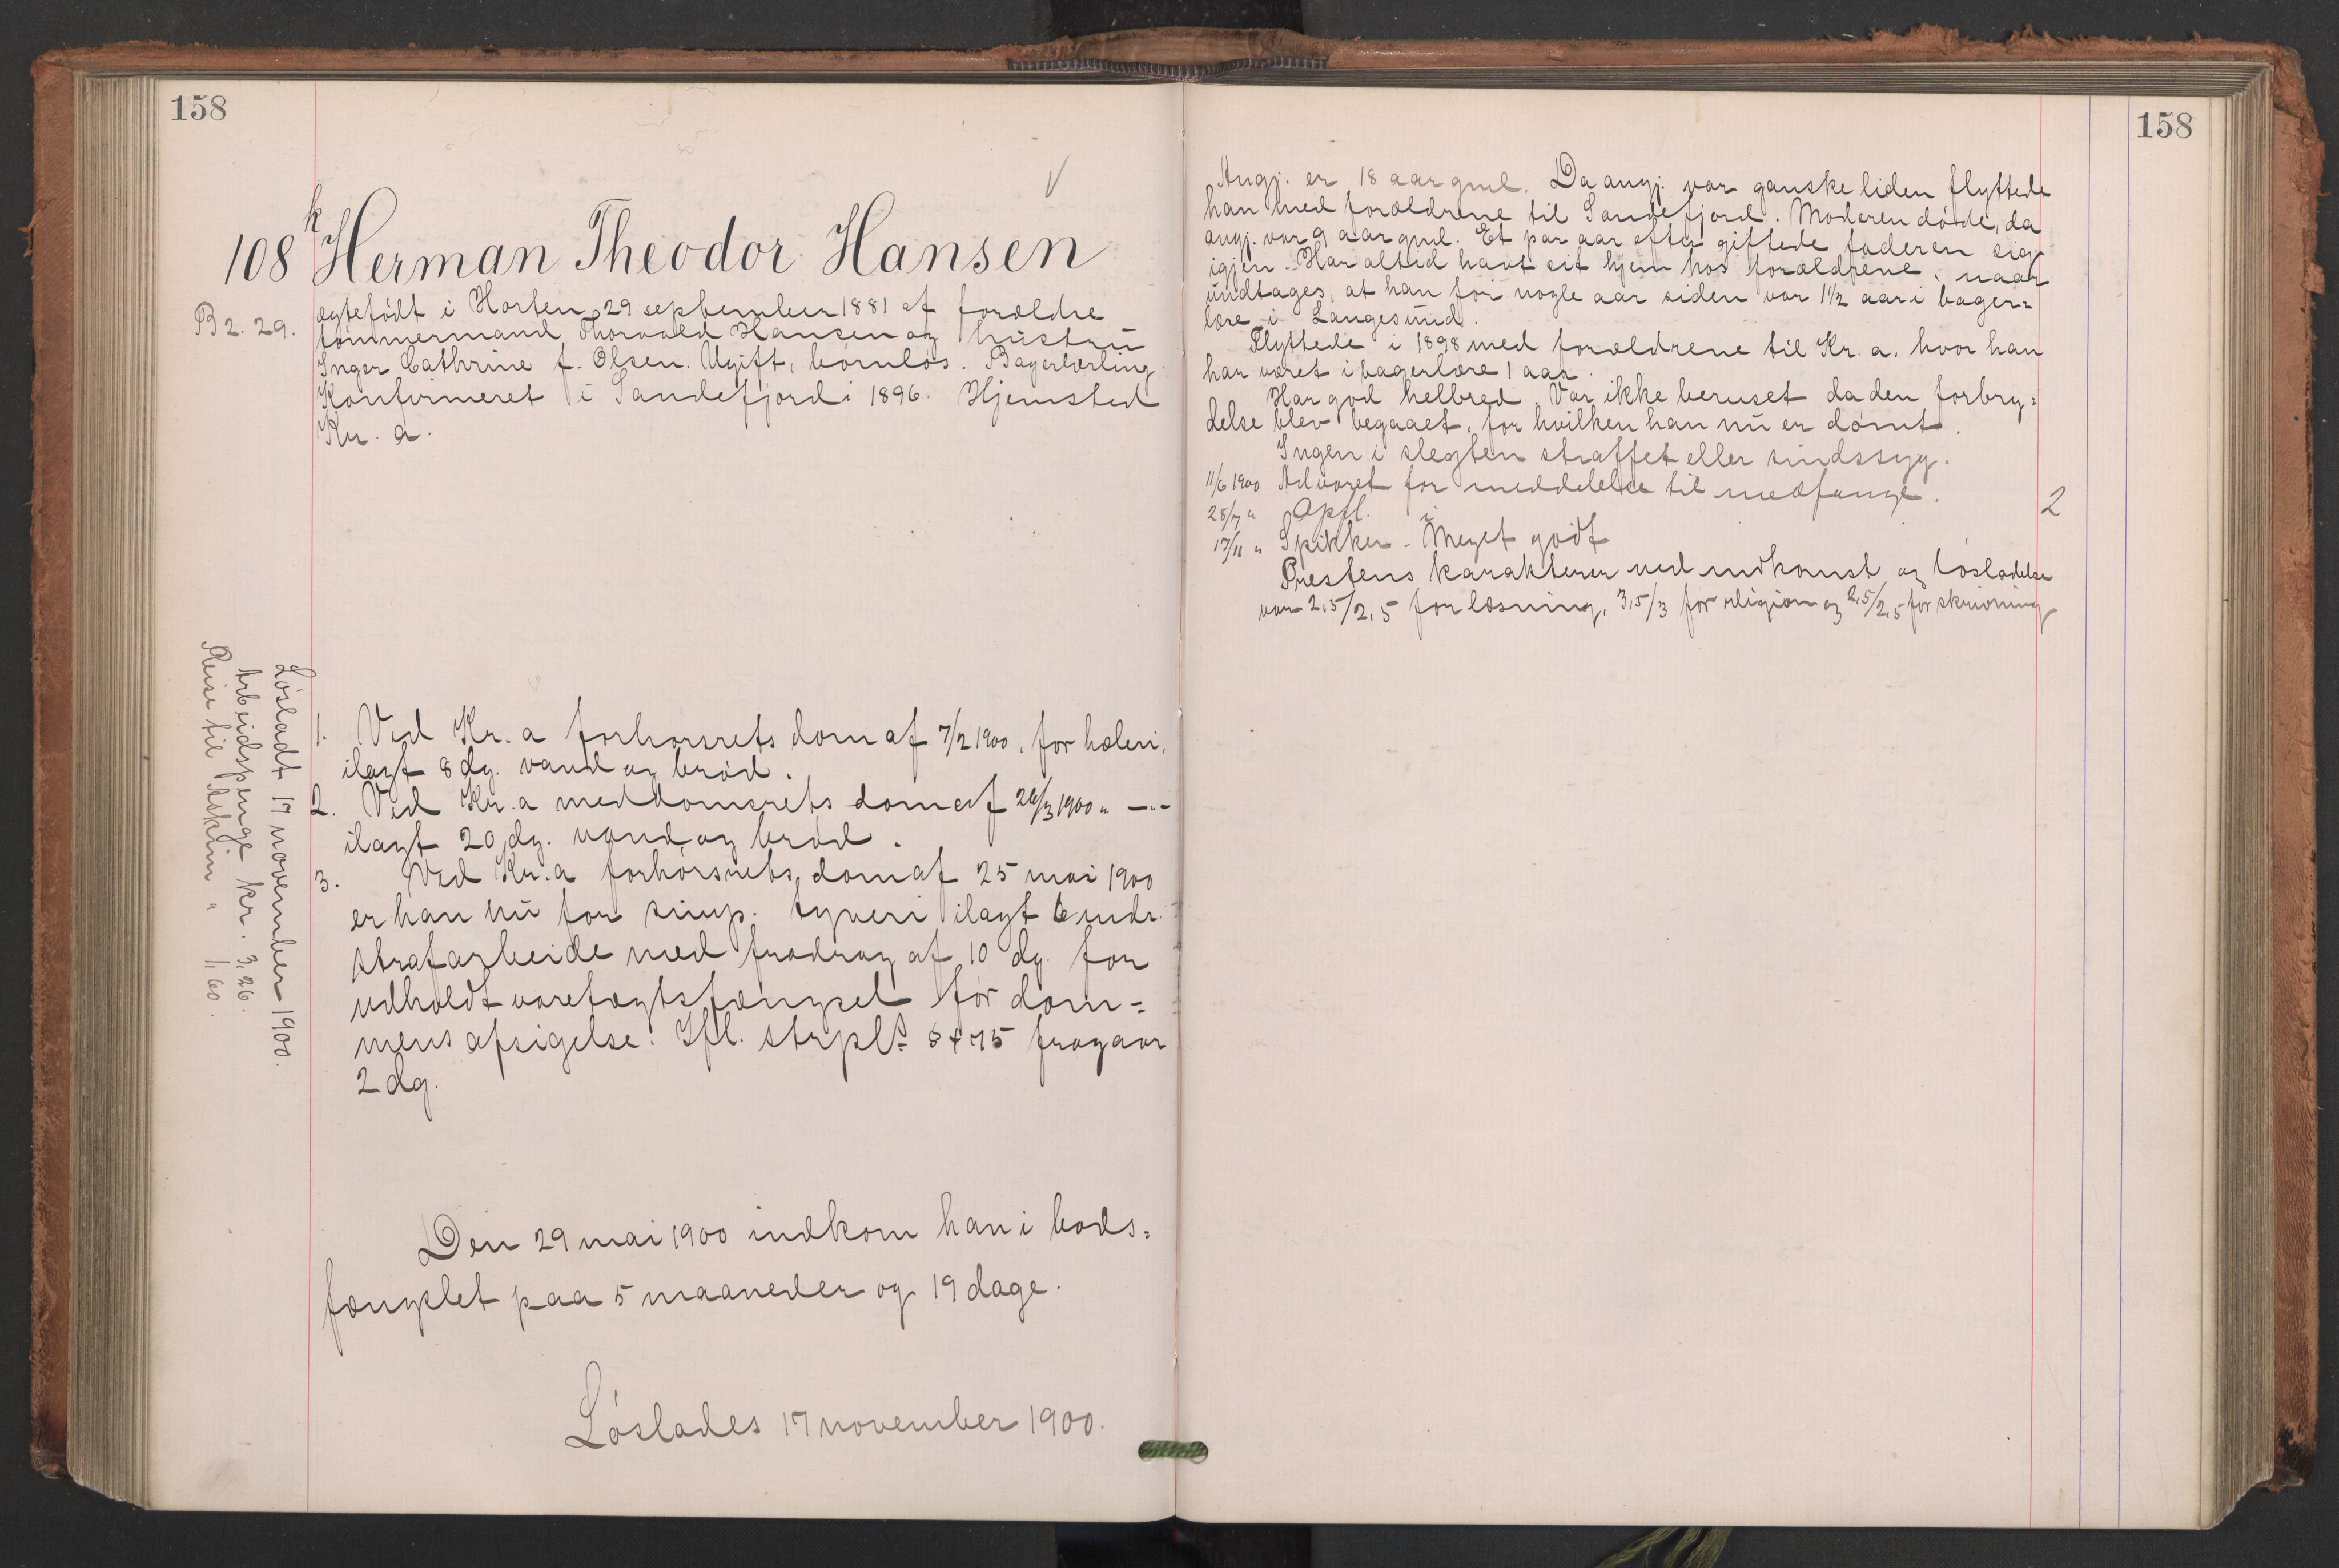 158
108 k Herman Theodor Hansen
B 2. 29.
ægtefødt i Horten 29 september 1881 af forældre
tømmermand Thorvald Hansen og hustru
Inger Cathrine f. Olsen. Ugift, børnløs. Bagerlærling.
Konfirmeret i Sandefjord i 1896. Hjemsted
Kr. a.
1. Ved Kr. a forhørsrets dom af 7/2 1900, for hæleri,
ilagt 8 dg. vand og brød.
2. Ved Kr. a meddomsrets dom af 26/3 1900 " —"—
ilagt 20 dg. vand og brød.
3. Ved Kr. a forhørsrets dom af 25 mai 1900
er han nu for simp. tyveri ilagt 6 mdr.
strafarbeide med fradrag af 10 dg. for
udholdt varetægtsfængsel før dom=
mens afsigelse. Ifl. strpl. § 475 fragaar
2 dg.
Løsladt 17 november 1900.
Arbeidspenge kr. 3,26.
Reise til " 1,60.
Den 29 mai 1900 indkom han i bods=
fængslet paa 5 maaneder og 19 dage.
Løslades 17 november 1900.
158
Angj. er 18 aar gml. Da angj. var ganske liden flyttede
han med forældrene til Sandefjord. Moderen døde, da
angj. var 9 aar gml. Et par aar efter giftede faderen sig
igjen. Har altid havt sit hjem hos forældrene, naar
undtages, at han for nogle aar siden var 1½ aar i bager=
lære i Langesund.
Flyttede i 1898 med forældrene til Kr. a. hvor han
har været i bagerlære 1 aar.
Har god helbred. Var ikke beruset da den forbry=
delse blev begaaet, for hvilken han nu er dømt.
Ingen i slegten straffet eller sindssyg.
11/6 1900 Advaret for meddelelse til medfange.
28/7 " Opfl. 2
17/11 " Spikker. Meget godt
Prestens karakterer ved indkomst og løsladelse
var 2,5/2,5 for læsning, 3,5/3 for religion og 2,5/2,5 for skrivning